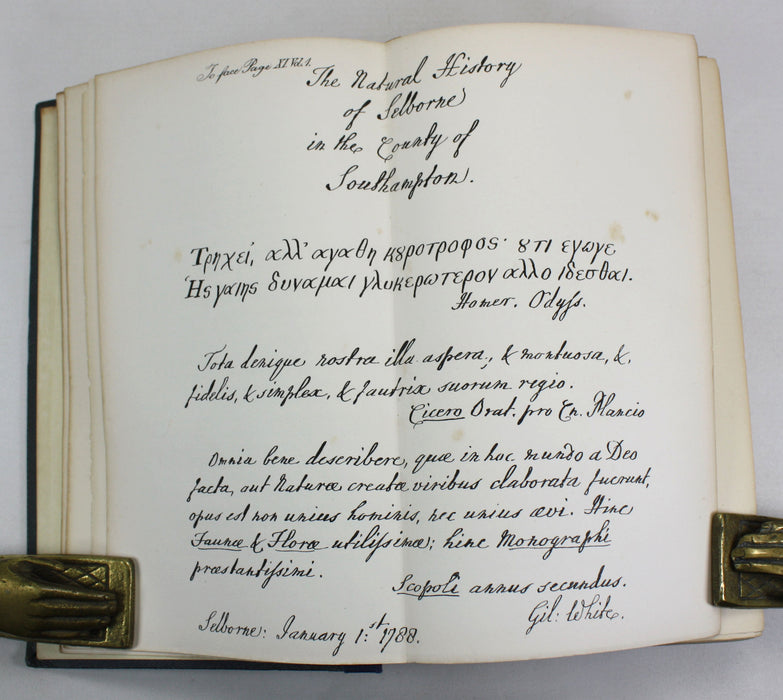 To face Page XI Vol. 1.
The Natural History
of Selborne
in the County of
Southampton.
Τρηχεῖ, αλλ' αγαθη κȣροτροφος· ȣτι εγωγε
Ἡς γαιης δυναμαι γλυκερωτερον αλλο ιδεσθαι.
Homer. Odyss.
Tota denique nostra illa aspera, & montuosa, &,
fidelis, & simplex, & fautrix suorum regio.
Cicero Orat. pro Cn. Plancio
Omnia bene describere, quæ in hoc mundo a Deo
facta, aut Naturæ creatæ viribus elaborata fuerunt,
opus est non unius hominis, nec unius ævi. Hinc
Faunæ & Floræ utilissimæ; hinc Monographi
præstantissimi.
Scopoli annus secundus.
Gil: White.
Selborne: January 1:st 1788.